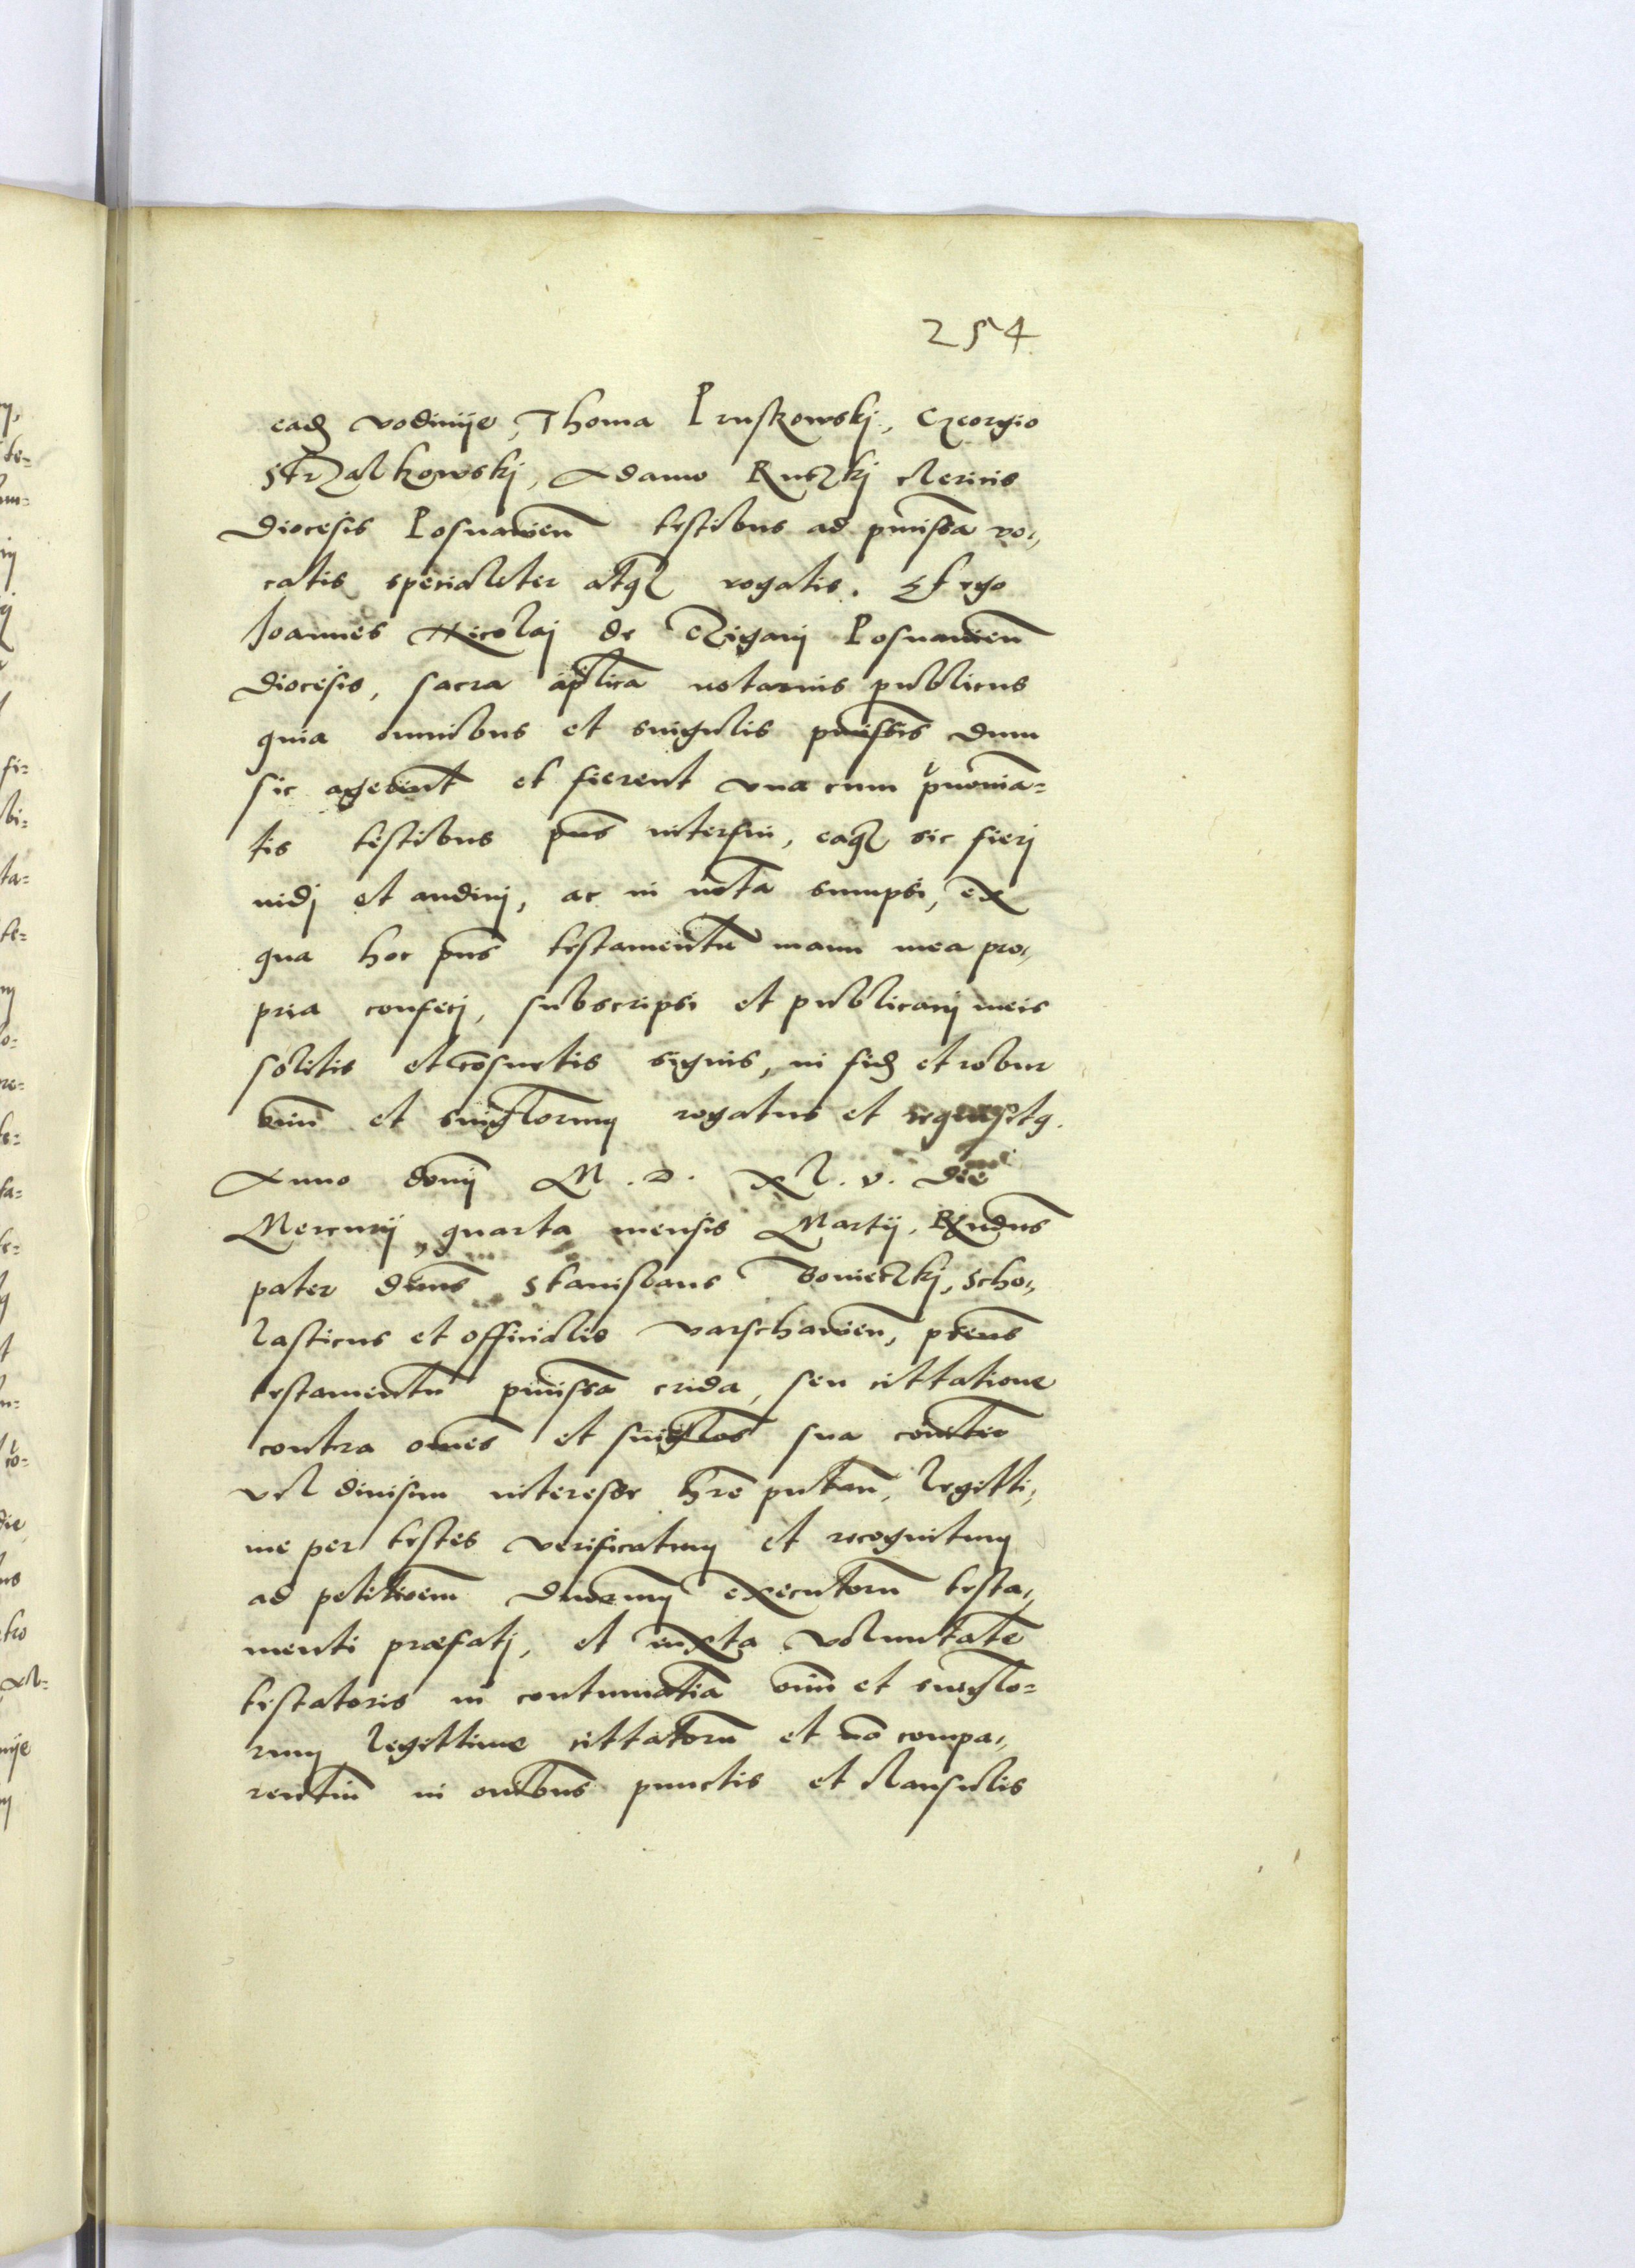 254
eadē vodinije, Thoma Pruskowskj, Georgio
Strzalkowskj, Adamo Ruczkj clericis
diocesis Posnanień testibus ad pmissa vo-
catis specialiter atq rogatis. Et ego
Joannes Nicolaj de Czigani Posnanień
diocesis, sacra aplica notarius publicus
quia omnibus et singulis pmissis dum
sic agerent et fierent vna cum pnomia=
tis testibus pns interfui, eaq sic fierj
uidj et audiuj, ac in nota sumpsi, ex
qua hoc pns testamentū manu mea pro-
pria confecj, subscripsi et publicauj meis
solitis et cōsuetis signis, in fidē et robur
oim et singlorum rogatus et requisitq.
Anno donj M. D. xl. v. die
Mercurij quarta mensis Martij, Rxndus
pater dnus Stanislaus Bonieczkj, scho-
lasticus et officialis varschawień, pens
testamentū pmissa crida, seu cittatione
contra omes et singlos sua coniter
vel diuisim interesse hre putan, legitti-
me per testes verificatum et recognitum
ad petitioem dnorum executorū testa-
menti præfatj, et iuxta voluntatē
testatoris in contumatiā oim et singlo=
rum legittime cittatorū et nō compa-
rentiū in omibus punctis et clausulis